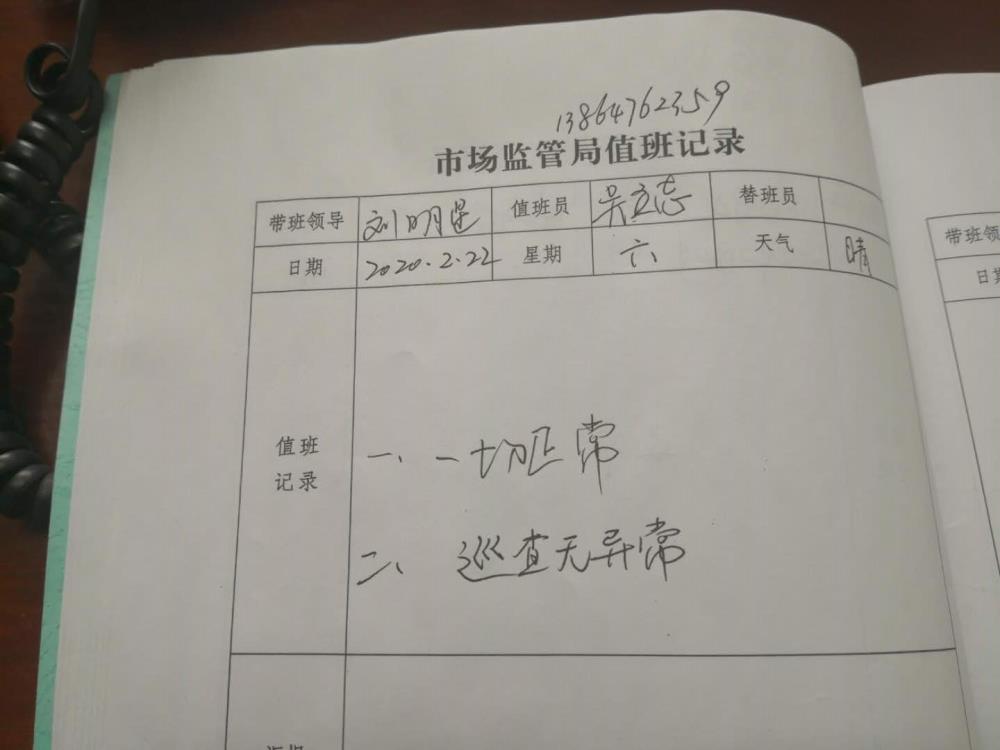 13864762359
市场监管局值班记录
带班领导 刘明星 值班员 吴立志 替班员
日期 2020.2.22 星期 六 天气 晴
值班记录
一、一切正常
二、巡查无异常
带班领
日期